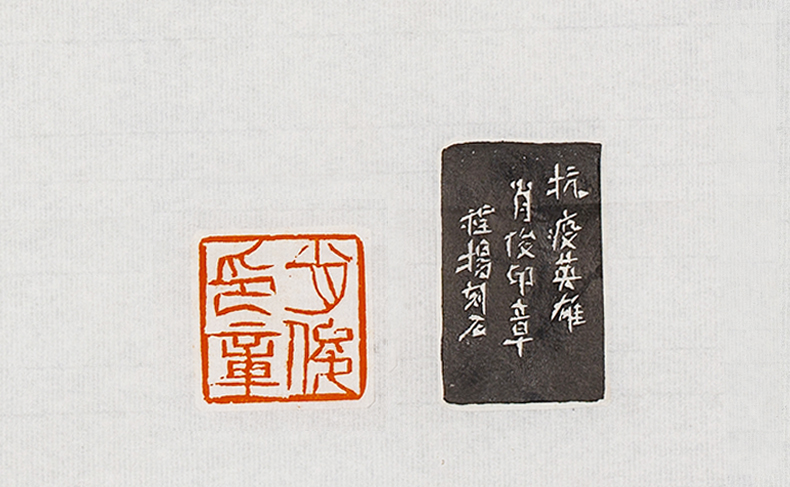 肖俊
印章
抗疫英雄
肖俊印章
程揚刻石